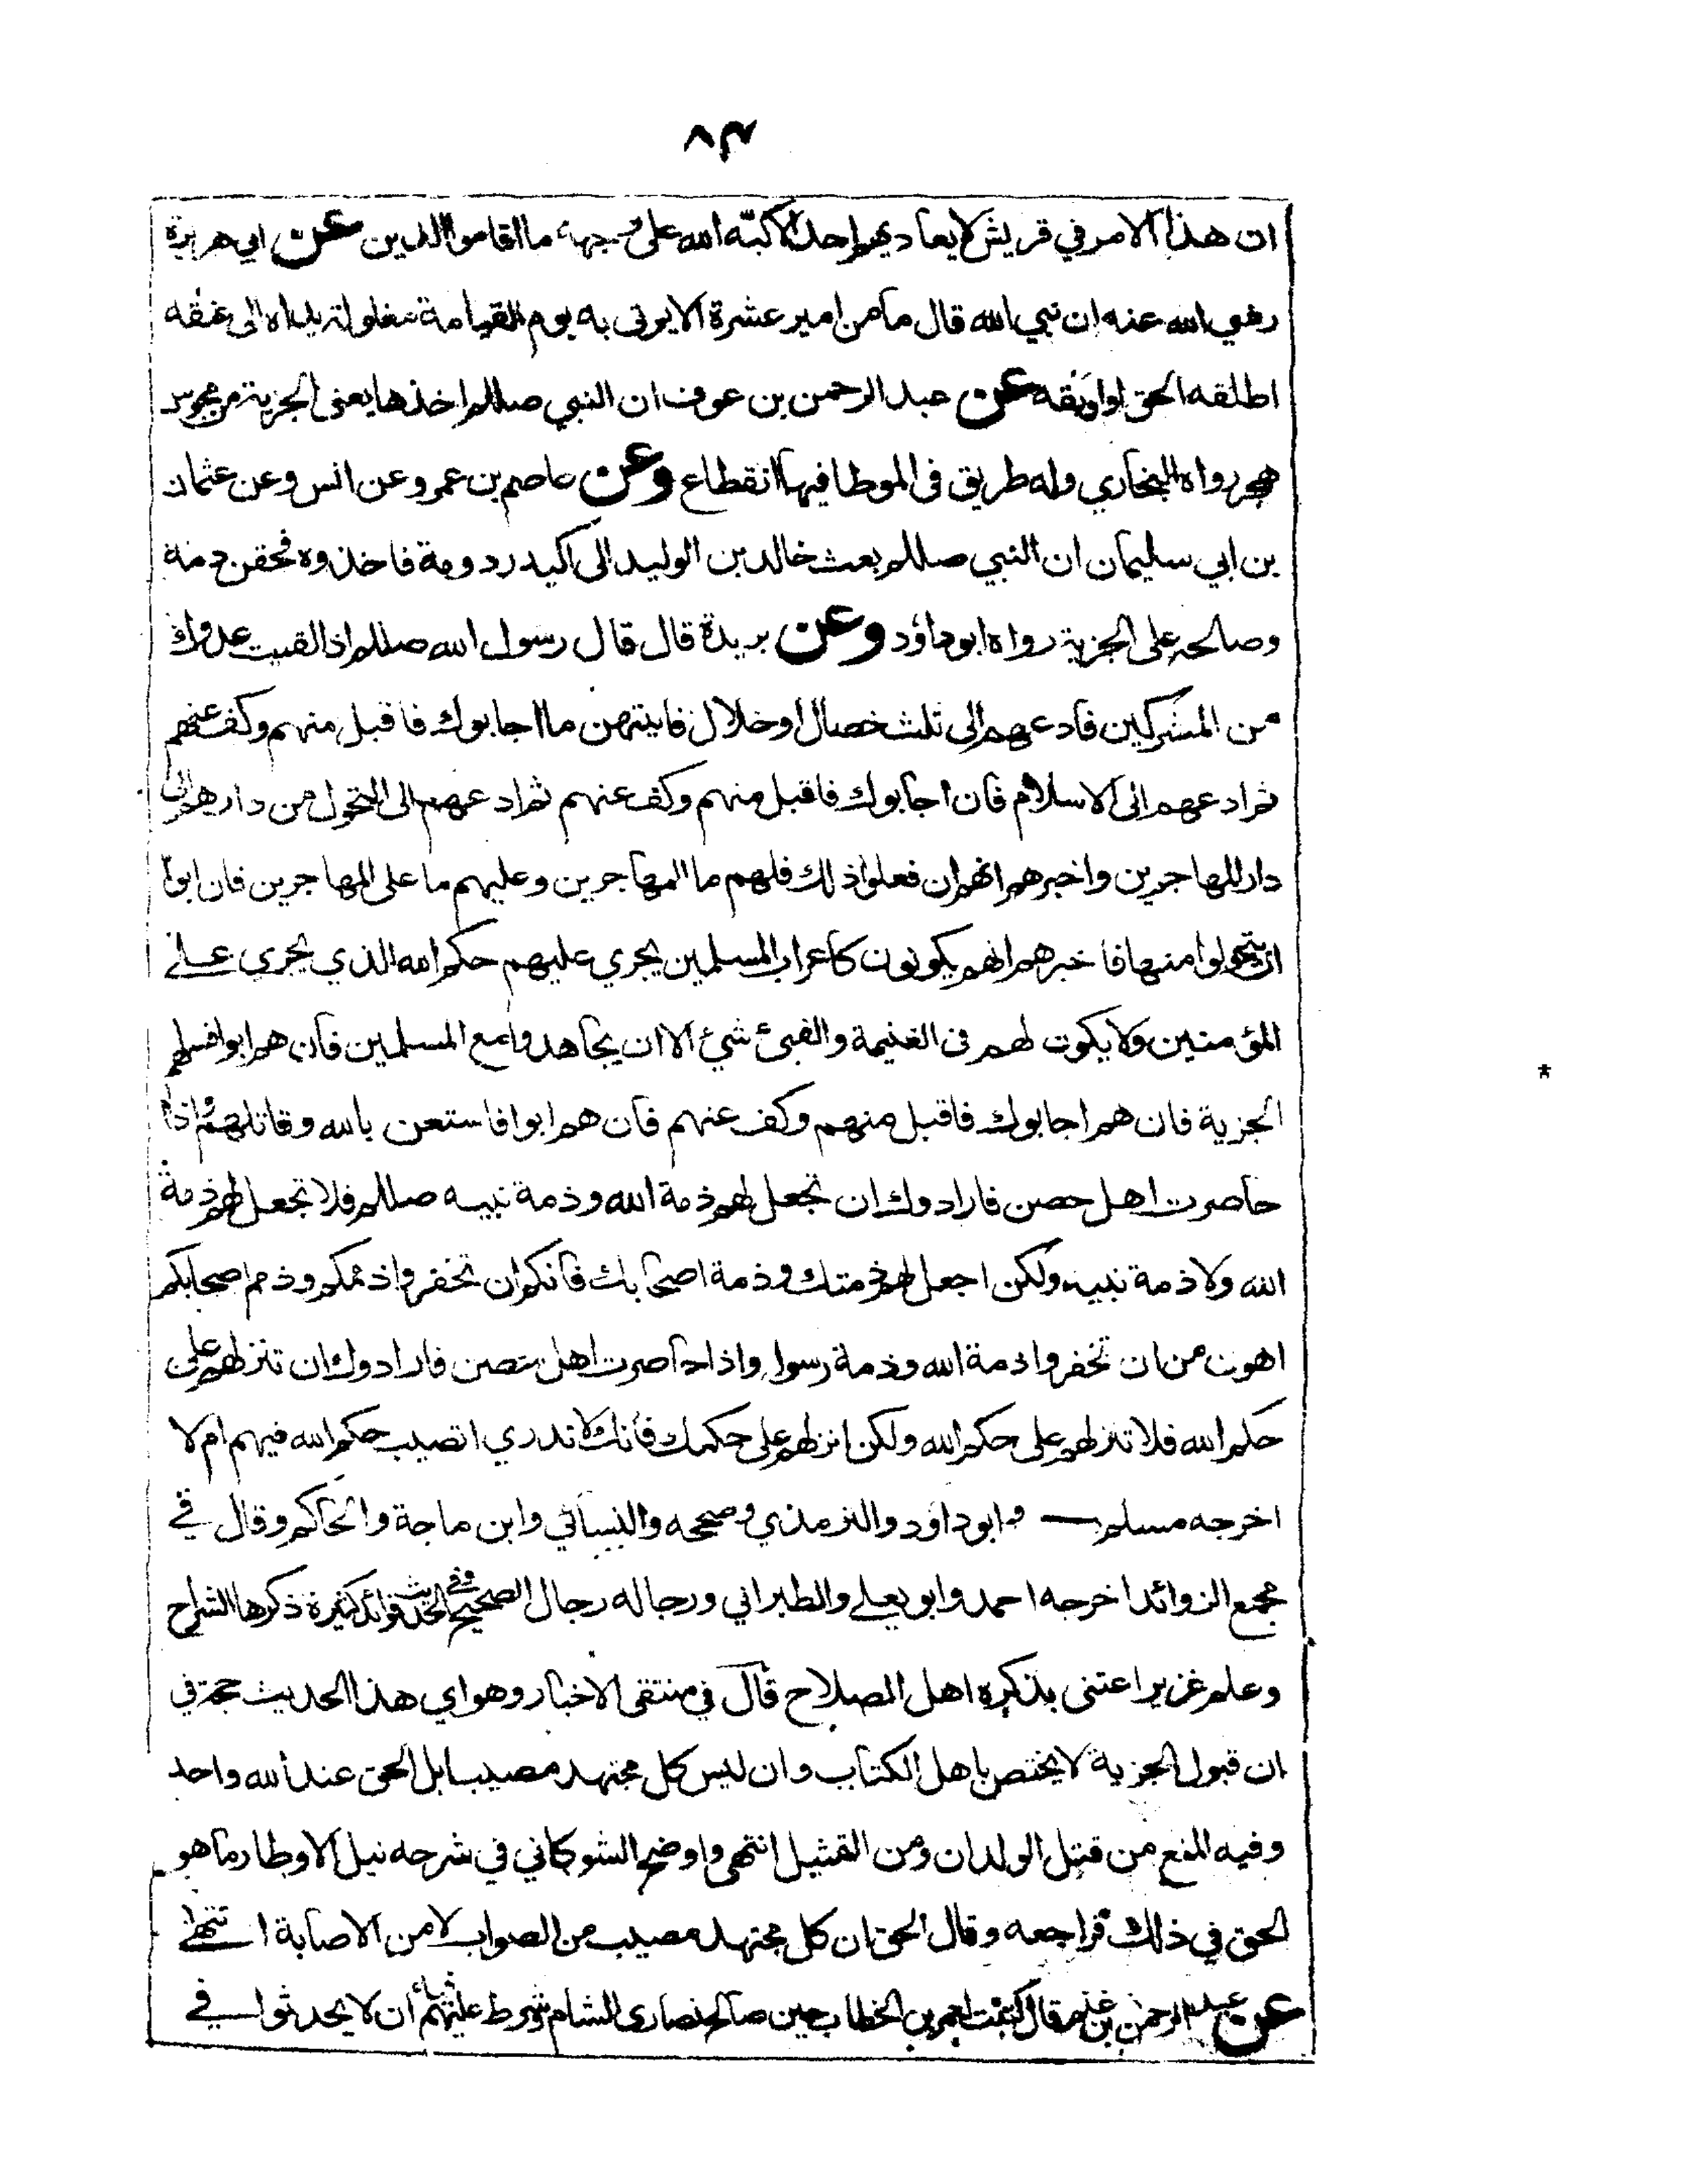 ٨٣
ان هذا الامر في قريش لا يعاديهم احد الا كبّه الله على وجهه ما اقاموا الدين عن ابي هريرة
رضي الله عنه ان نبي الله قال ما من امير عشرة الا يوتى به يوم القيامة مغلولة يداه الى عنقه
اطلقه الحق او اوبقه عن عبد الرحمن بن عوف ان النبي صللم اخذها يعني الجزية من مجوس
هجر رواه البخاري وله طريق في الموطا فيها انقطاع وعن عاصم بن عمر وعن انس وعن عثمان
بن ابي سليمان ان النبي صللم بعث خالد بن الوليد الى اكيدر دومة فاخذوه فحقن دمه
وصالحه على الجزية رواه ابو داؤد وعن بريدة قال قال رسول الله صللم اذا لقيت عدوك
من المشركين فادعهم الى ثلث خصال او خلال فايتهن ما اجابوك فاقبل منهم وكف عنهم
ثم ادعهم الى الاسلام فان اجابوك فاقبل منهم وكف عنهم ثم ادعهم الى التحول من دارهم الى
دار المهاجرين واخبرهم انهم ان فعلوا ذلك فلهم ما المهاجرين وعليهم ما على المهاجرين فان ابوا
ان يتحولوا منها فاخبرهم انهم يكونون كاعراب المسلمين يجري عليهم حكم الله الذي يجري على
المؤمنين ولا يكون لهم في الغنيمة والفيئ شيئ الا ان يجاهدوا مع المسلمين فان هم ابوا فسلهم
الجزية فان هم اجابوك فاقبل منهم وكف عنهم فان هم ابوا فاستعن بالله وقاتلهم واذا
حاصرت اهل حصن فارادوك ان تجعل لهم ذمة الله وذمة نبيه صللم فلا تجعل لهم ذمة
الله ولا ذمة نبيه ولكن اجعل لهم ذمتك وذمة اصحابك فانكم ان تخفروا ذممكم وذمم اصحابكم
اهون من ان تخفروا ذمة الله وذمة رسوله واذا حاصرت اهل حصن فارادوك ان تنزلهم على
حكم الله فلا تنزلهم على حكم الله ولكن انزلهم على حكمك فانك لا تدري اتصيب حكم الله فيهم ام لا
اخرجه مسلم وابو داؤد والترمذي وصححه والنسائي وابن ماجة والحاكم وقال في
مجمع الزوائد اخرجه احمد وابو يعلى والطبراني ورجاله رجال الصحيح وفي الحديث فوائد كثيرة ذكرها الشراح
وعلم غزير اعتنى بذكره اهل الصلاح قال في منتقى الاخبار وهو اي هذا الحديث حجة في
ان قبول الجزية لا يختص باهل الكتاب وان ليس كل مجتهد مصيبا بل الحق عند الله واحد
وفيه المنع من قتل الولدان ومن التمثيل انتهى واوضح الشوكاني في شرحه نيل الاوطار ما هو
الحق في ذلك فراجعه وقال الحق ان كل مجتهد مصيب من الصواب لا من الاصابة انتهى
عن عبد الرحمن بن غنم قال كتبت لعمر بن الخطاب حين صالح نصارى الشام وشرط عليهم ان لا يحدثوا في
*